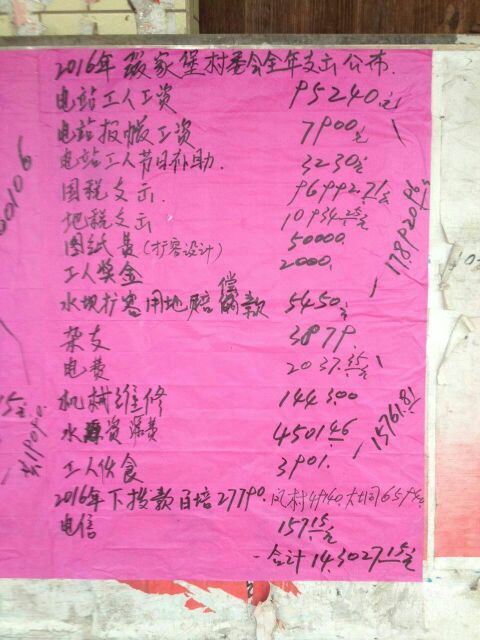 2016年 段家堡村委会全年支出公布.
电站工人工资 95240元
电站报帐工资 7900元
电站工人节日补助. 3230元
国税支出 96992.71元
地税支出 10934.25元
图纸费(扩容设计) 50000.
工人奖金 2000.
水坝扩容用地赔偿款 5450元
杂支 3879.
电费 2037.35元
机械维修 14300
水资源费 4501.46
工人伙食 3901.
2016年下拨款 27790.
电信 157.15元
合计 143027.15元
15761.81